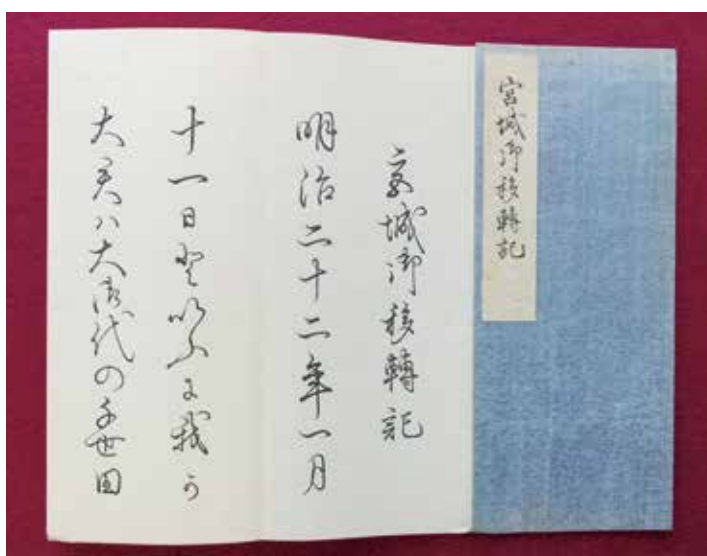 宮城御移轉記
宮城御移轉記
明治二十二年一月
十一日登いふに我か
大君ハ大御代の千世田